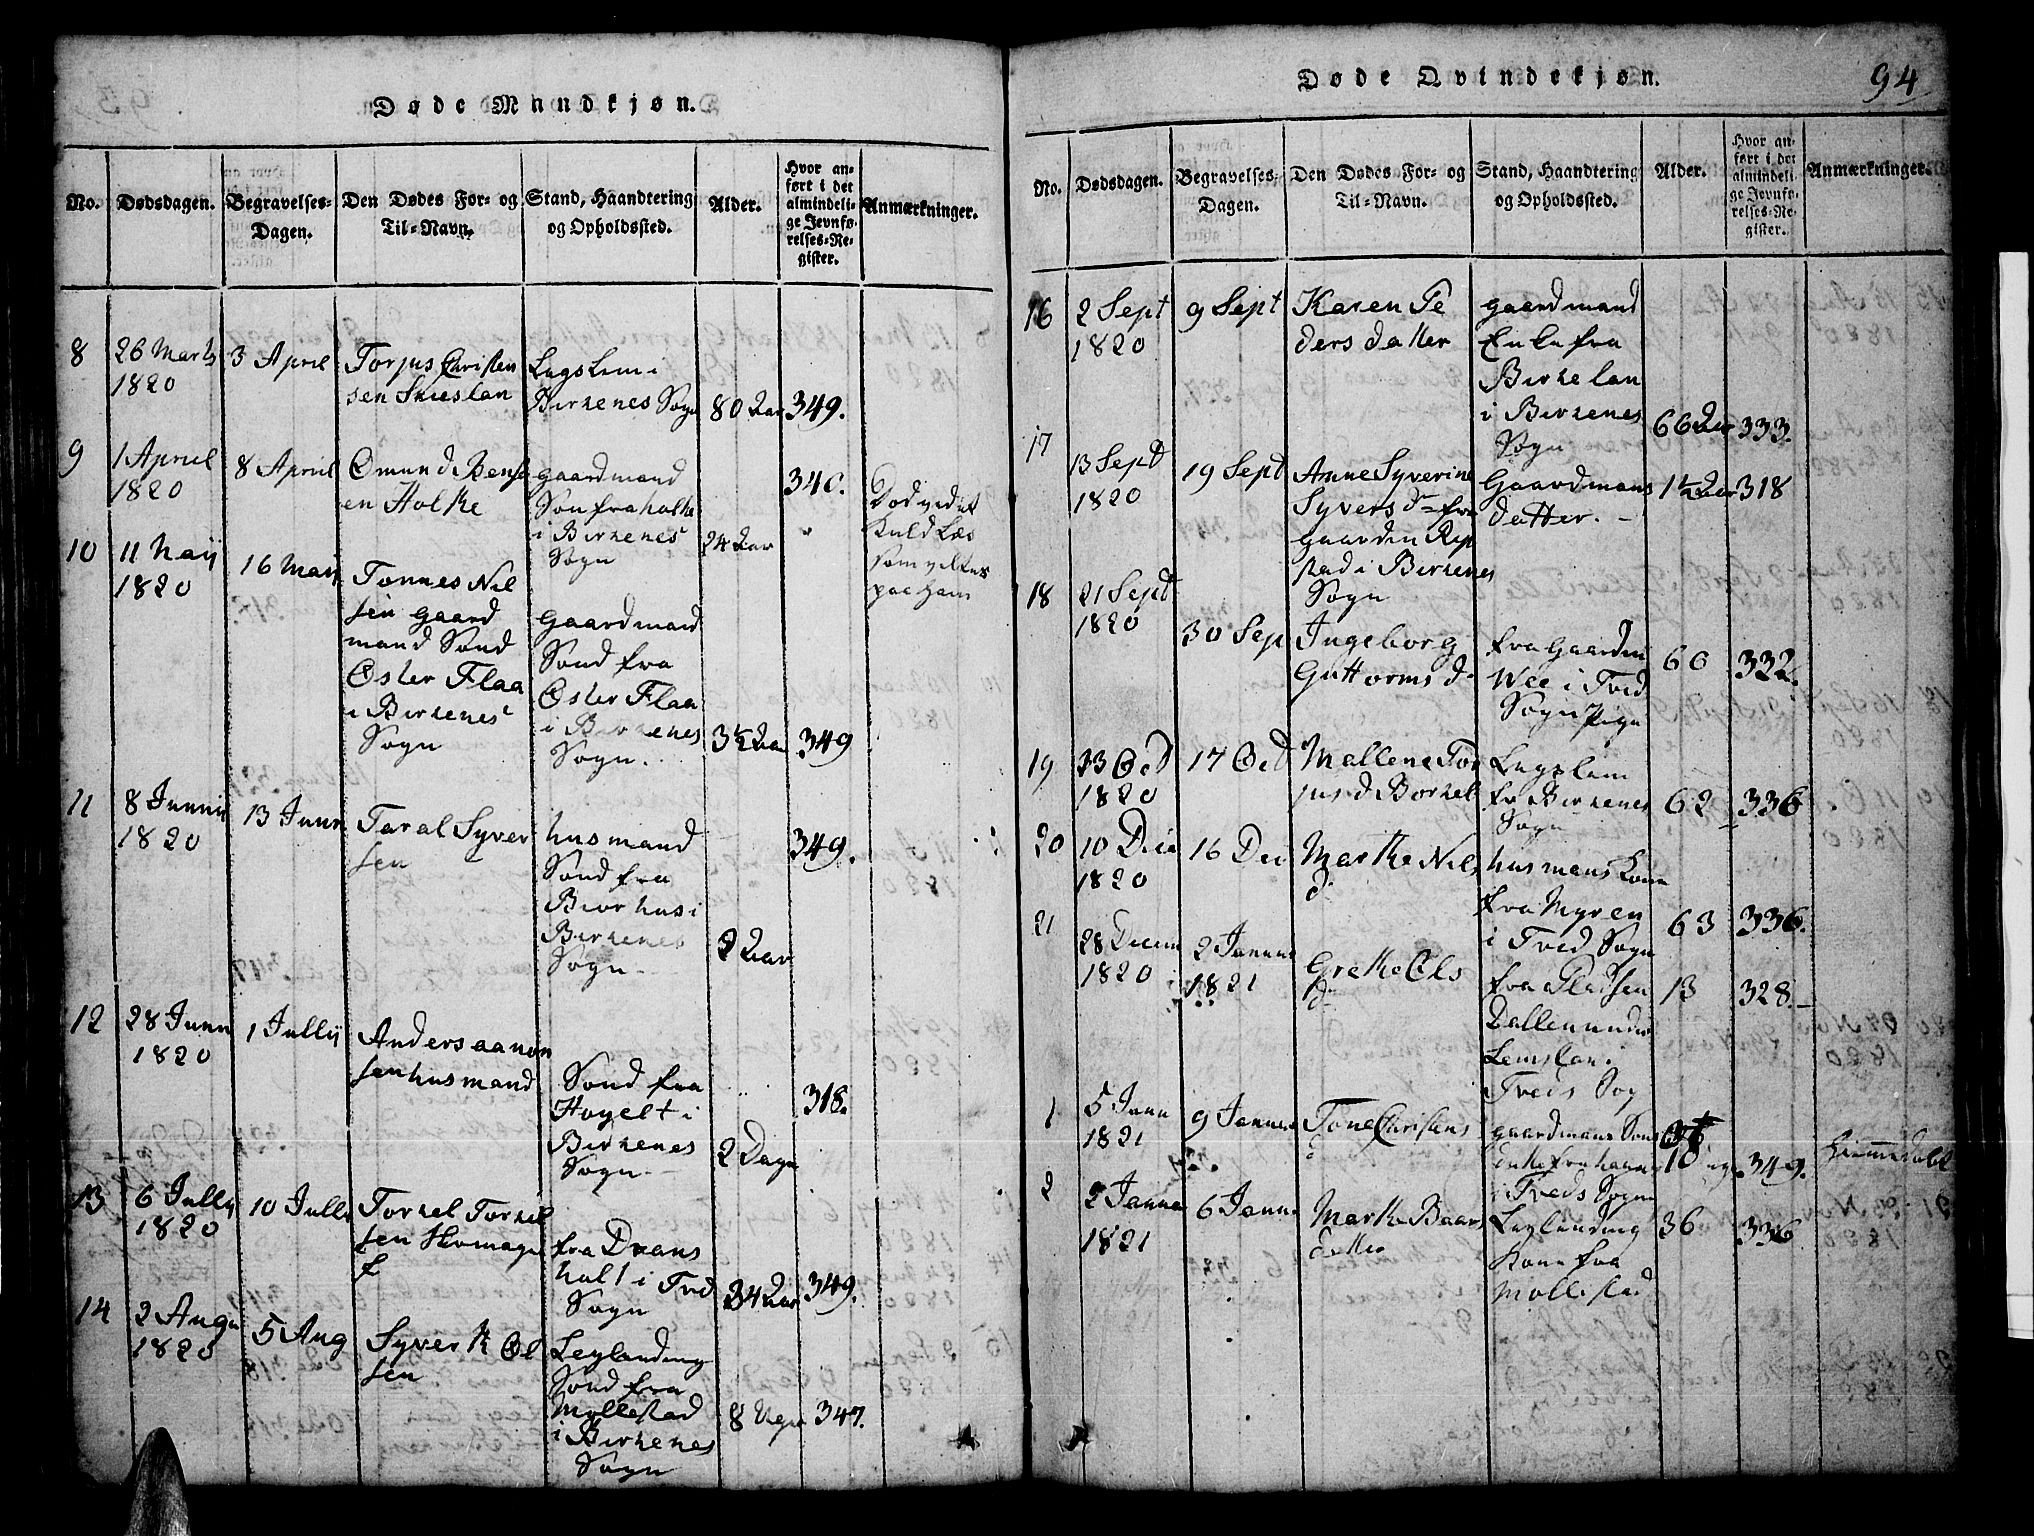 Døde Mandkjøn.
No.
Dødsdagen.
Begravelses=
Dagen.
Den Dødes For= og
Til=Navn.
Stand, Haandtering
og Opholdssted.
Alder.
Hvor an=
ført i det
almindeli=
ge Jevnfø=
relses=Re=
gister.
Anmærkninger.
8
26 Marts
1820
3 April
Torjus Christen
sen
Lægslem i
Birkenes Sogn
80 Aar
349.
9
1 April
1820
8 April
Omund Bens
en Holte
gaardmand
Søn fra holte
i Birkenes
Sogn
24 Aar
340.
Død ved et
som
paa ham
10
11 Maij
1820
16 Maij
Tønnes Nil
sen gaard
mand Sønd
Øster Flaa
i Birkenes
Sogn
Gaardmand
Sønd fra
Øster Flaa
i Birkenes
Sogn.
3½ Aar
349
11
8 Junii
1820
13 Juni
Taral Syver
sen
husmand
Sønd fra
i
Birkenes
Sogn
2 Aar
349.
12
28 Juni
1820
1 Jullij
Anders aanon
sen husmand
Sønd fra
Høgelt i
Birkenes
Sogn
2 Dage
318.
13
6 Jullij
1820
10 Julli
Torkel Torkil
sen
fra Drans
holt i Tved
Sogn
34 Aar
349.
14
2 Augu
1820
5 Aug
Syvert Ol
sen
Leylænding
Sønd fra
Mollestad
i Birkenes
Sogn
8 Uger
347.
Døde Qvindekjøn.
94
No.
Dødsdagen.
Begravelses=
Dagen.
Den Dødes For= og
Til=Navn.
Stand, Haandtering
og Opholdssted.
Alder.
Hvor an=
ført i det
almindeli=
ge Jevnfø=
relses=Re=
gister.
Anmærkninger.
16
2 Sept
1820
9 Sept
Karen Pe
ders datter
gaardmand
Enke fra
Birkelan
i Birkenes
Sogn
66 Aar
333.
17
13 Sept
1820
19 Sept
Anne Syverine
Syvers d. fra
gaarden Rep
stad i Birkenes
Sogn
Gaardmans
datter.
1½ Aar
318
18
21 Sept
1820
30 Sep
Ingeborg
Guttorms d.
fra Gaarden
Wee i Tved
Sogn Pige
60
332.
19
13 Oct
1820
17 Oct
Mallene Tor
jus d.
Lægslem
fr Birkenes
Sogn
62
336
20
10 Dec
1820
16 Dec
Marthe Nils
d.
husmans kone
fra Myren
i Tved Sogn
63
336.
21
28 Decem
1820
2 Janua
1821
Grethe Ols
d.
fra Pladsen
Dallen under
i
Tveds Sog
13
328.
1
5 Janu
1821
9 Janua
Tone Christens
d.
gaardmans
Enke fra
i Tveds Sogn
349.
2
2 Janua
1821
6 Janu
Marthe Baars
datter
Leylænding
Kone fra
Mollestad
36
336